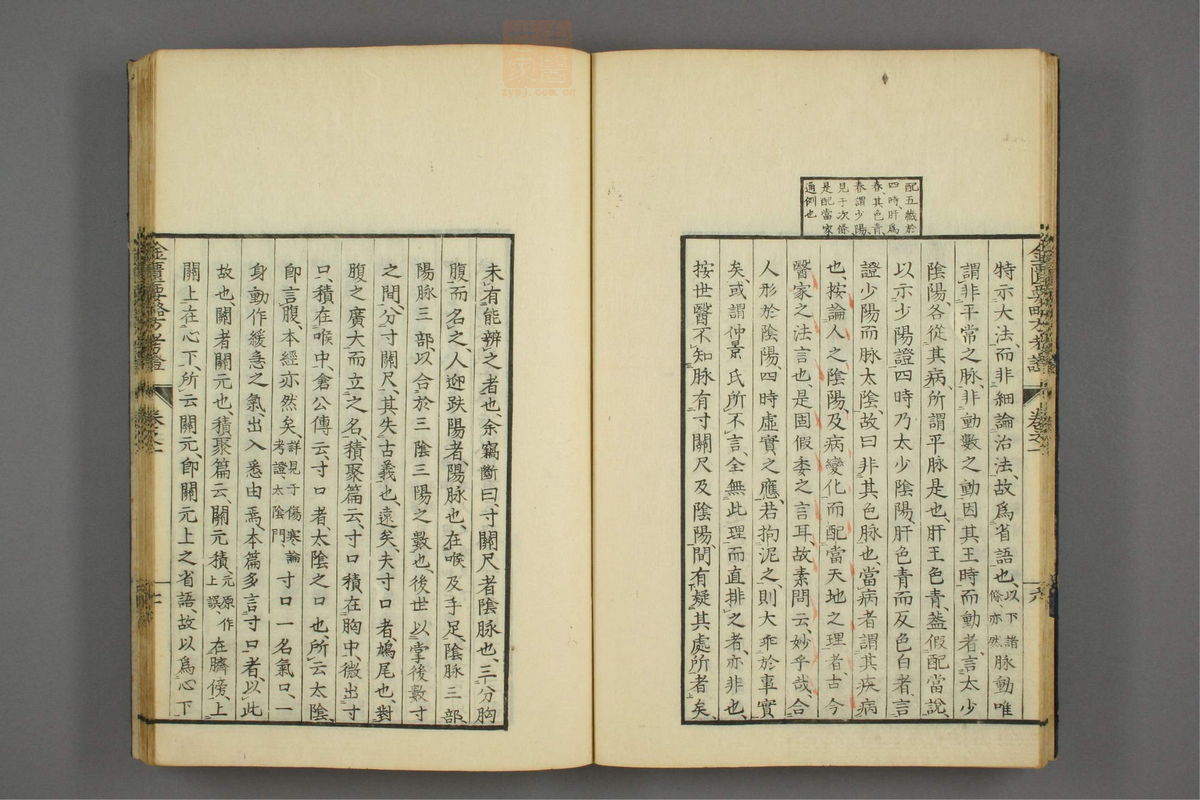 配五藏於
四時、肝爲
春、其色青、
春謂少陽、
見于次條、
是配當家
通例也
特示大法、而非細論治法、故爲省語也、以下諸條亦然脉動唯
謂非平常之脉、非動數之動、因其王時而動者、言太少
陰陽、各從其病、所謂平脉是也、肝王色青、葢假配當說、
以示少陽證、四時乃太少陰陽、肝色青而反色白者、言
證少陽而脉太陰、故曰非其色脉也、當病者謂其疾病
也、按論人之陰陽、及病變化、而配當天地之理者、古今
醫家之法言也、是固假委之言耳、故素問云妙乎哉、合
人形於陰陽、四時虛實之應、若拘泥之、則大乖於事實
矣、或謂仲景氏所不言、全無此理、而直排之者、亦非也、
按世醫不知脉有寸關尺及陰陽、間有疑其處所者矣、
未有能辨之者也、余竊斷曰、寸關尺者陰脉也、三分胸
腹而名之、人迎趺陽者、陽脉也、在喉及手足、陰脉三部、
陽脉三部、以合於三陰三陽之數也、後世以掌後數寸
之間、分寸關尺、其失古義也、遠矣、夫寸口者、鳩尾也、對
腹之廣大而立之名、積聚篇云、寸口積在胸中、微出寸
口、積在喉中、倉公傳云、寸口者、太陰之口也、所云太陰、
卽言腹、本經亦然矣、詳見于傷寒論考證、太陰門、寸口一名氣口、一
身動作緩急之氣、出入悉由焉、本篇多言寸口者、以此
故也、關者關元也、積聚篇云、關元積、元原作上誤、在臍傍、上
關上在心下、所云關元、卽關元上之省語、故以爲心下
金匱要略方考證
卷之一
金匱要略方考證
卷之一